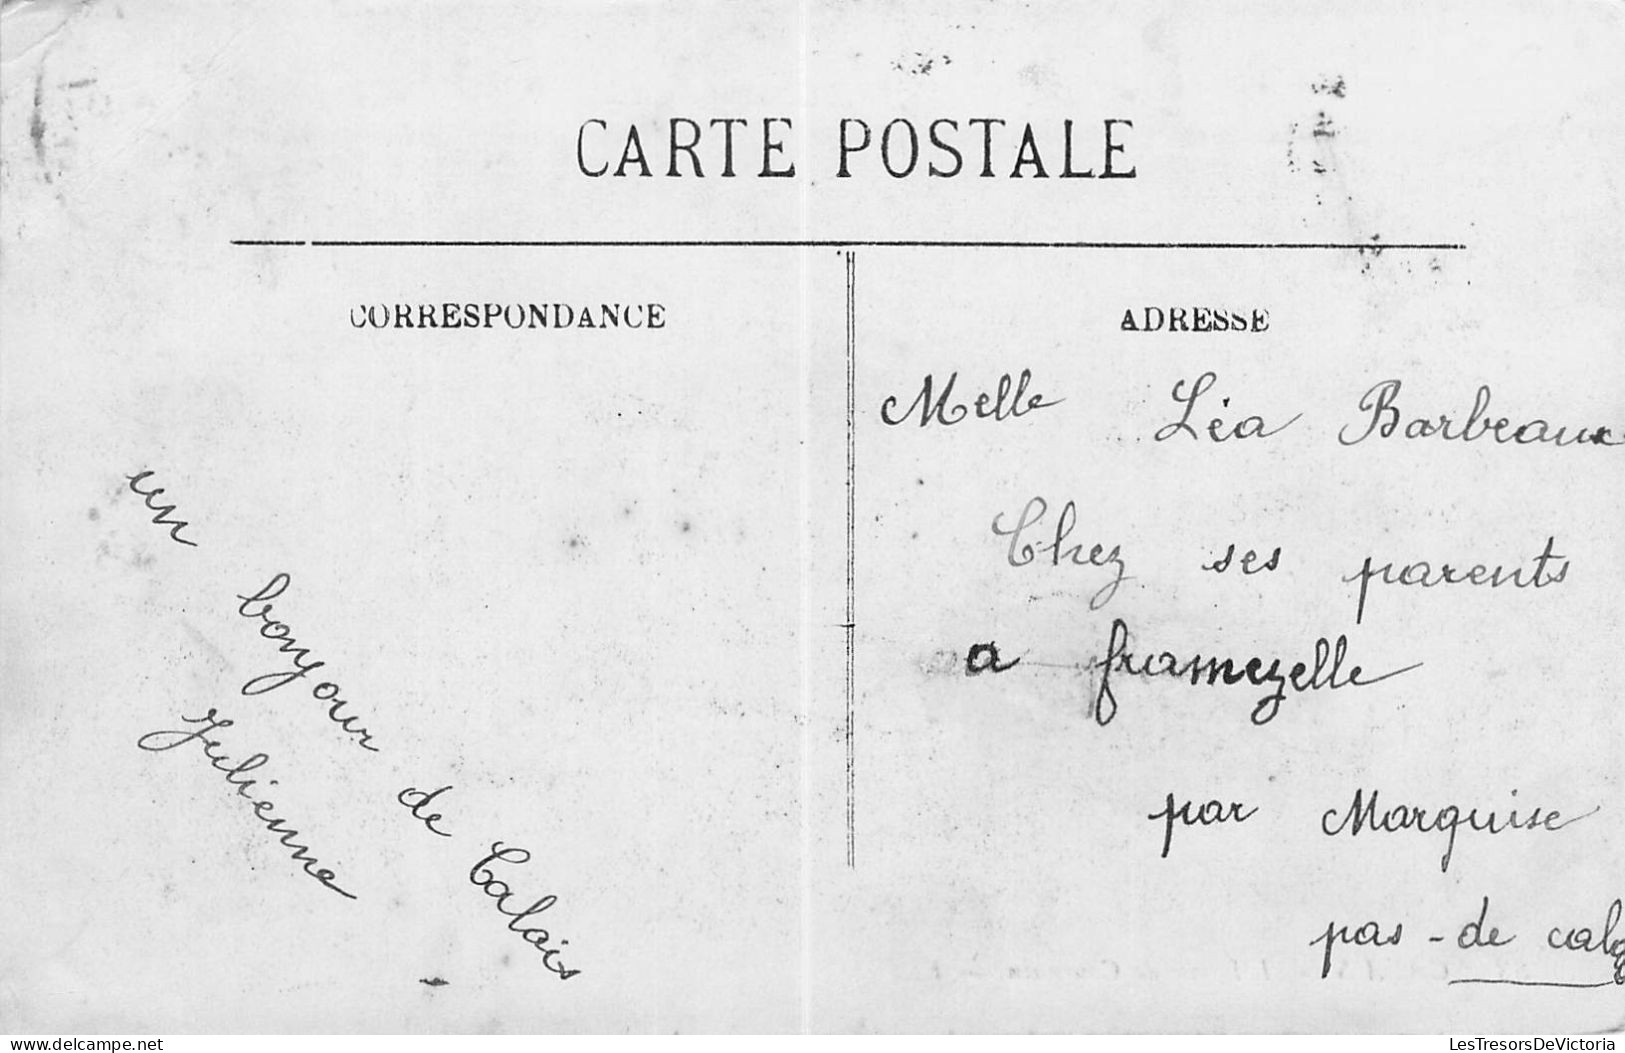 CARTE POSTALE
CORRESPONDANCE
un bonjour de Calais
Julienne
ADRESSE
Melle Léa Barbeaux
Chez ses parents
a framezelle
par Marquise
pas-de cala
LesTresorsDeVictoria